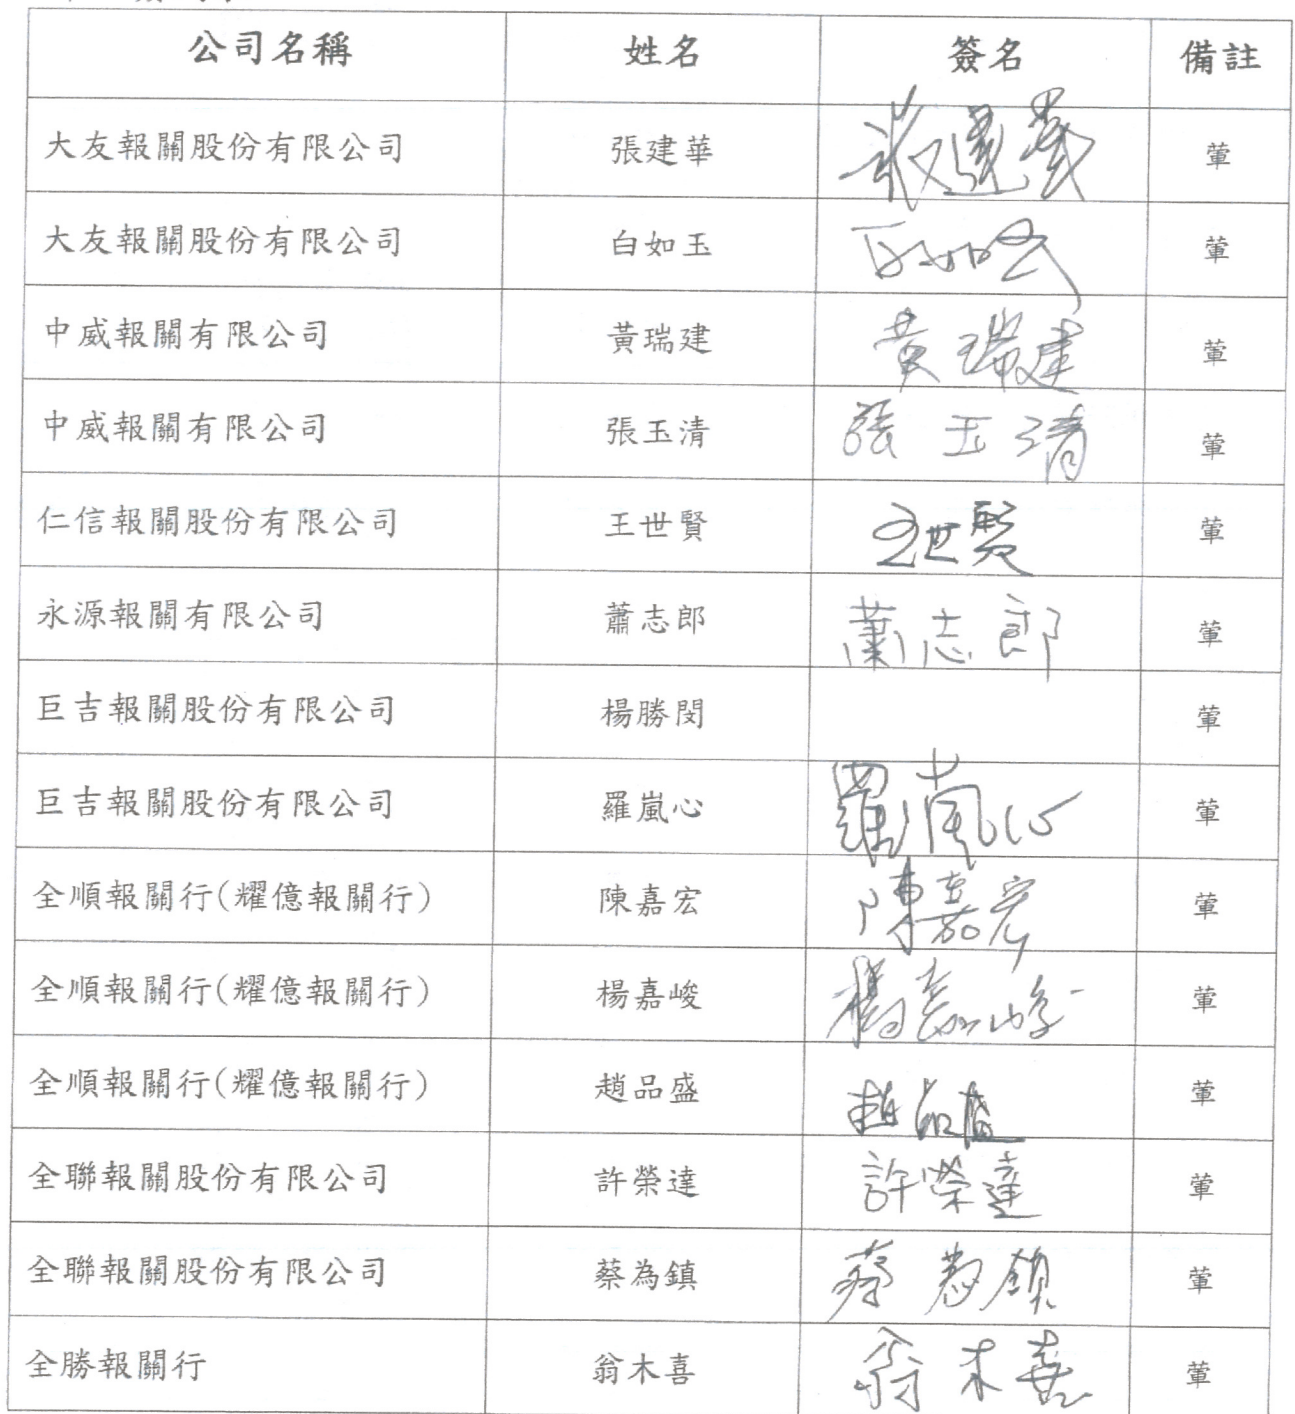 公司名稱 姓名 簽名 備註
大友報關股份有限公司 張建華 張建華 葷
大友報關股份有限公司 白如玉 白如玉 葷
中威報關有限公司 黃瑞建 黃瑞建 葷
中威報關有限公司 張玉清 張玉清 葷
仁信報關股份有限公司 王世賢 王世賢 葷
永源報關有限公司 蕭志郎 蕭志郎 葷
巨吉報關股份有限公司 楊勝閔 葷
巨吉報關股份有限公司 羅嵐心 羅嵐心 葷
全順報關行(耀億報關行) 陳嘉宏 陳嘉宏 葷
全順報關行(耀億報關行) 楊嘉峻 楊嘉峻 葷
全順報關行(耀億報關行) 趙品盛 趙品盛 葷
全聯報關股份有限公司 許榮達 許榮達 葷
全聯報關股份有限公司 蔡為鎮 蔡為鎮 葷
全勝報關行 翁木喜 翁木喜 葷